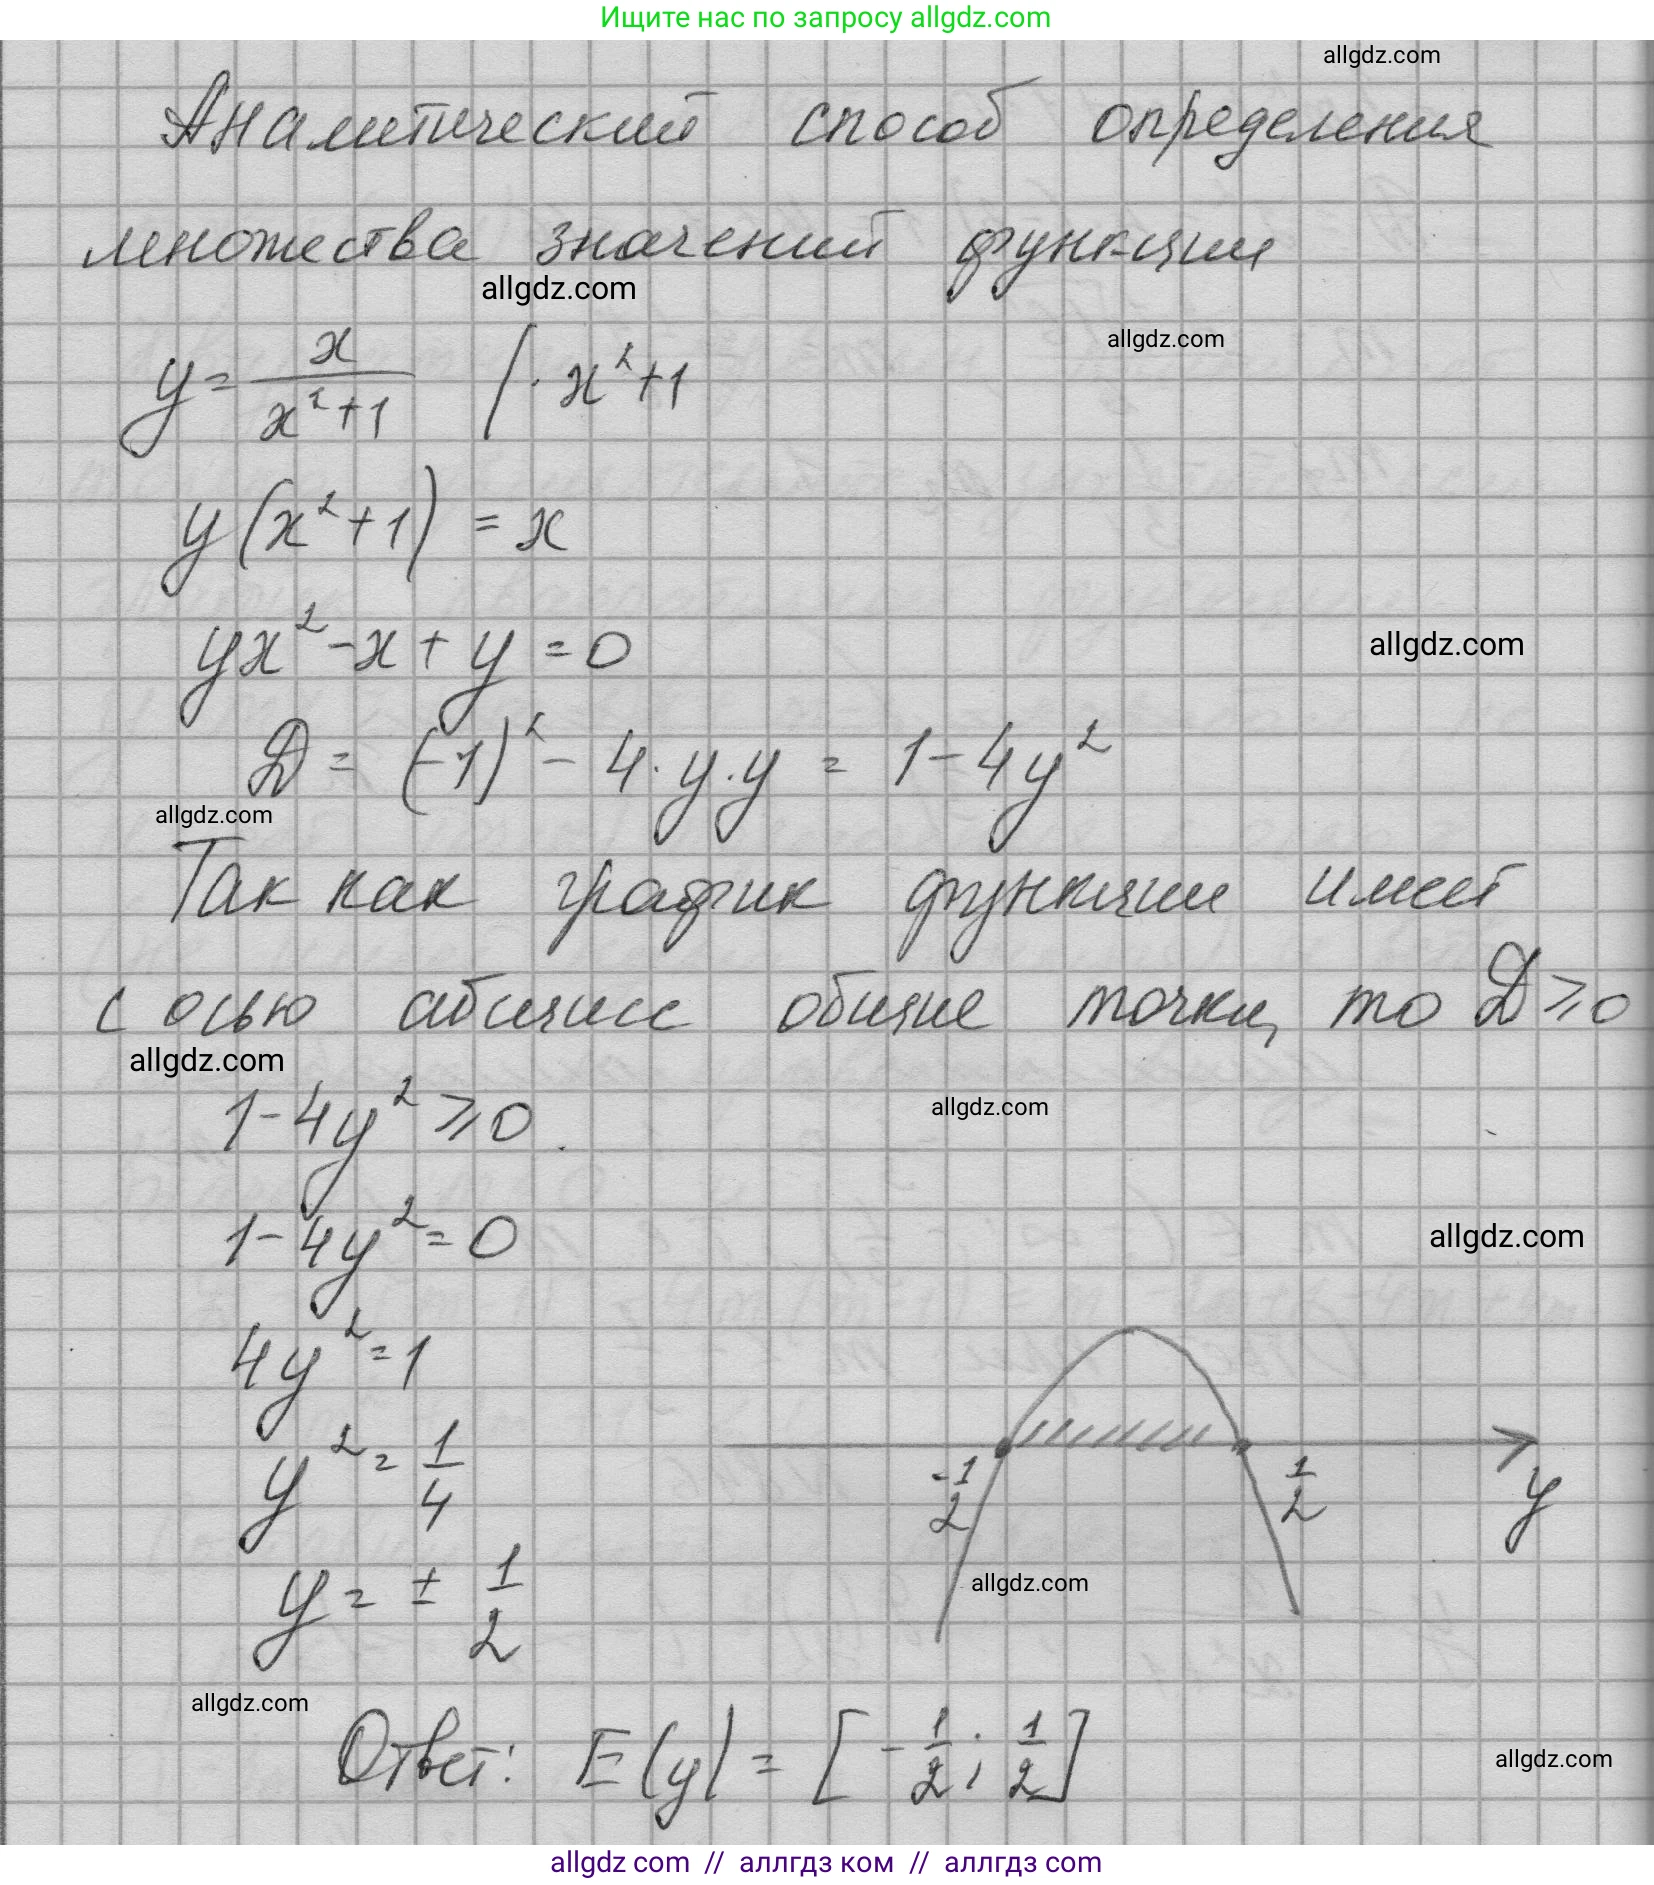 Ищите нас по запросу allgdz.com
allgdz.com
Аналитический способ определения
множества значений функции
allgdz.com
allgdz.com
y = x/(x²+1) | · x²+1
y(x²+1) = x
yx² - x + y = 0
allgdz.com
Д = (-1)² - 4·y·y = 1 - 4y²
allgdz.com
Так как график функции имеет
с осью абсцисс общие точки, то Д ≥ 0
allgdz.com
allgdz.com
1 - 4y² ≥ 0
1 - 4y² = 0
allgdz.com
4y² = 1
y² = 1/4
-1/2 1/2 y
allgdz.com
y = ± 1/2
allgdz.com
Ответ: E(y) = [-1/2; 1/2]
allgdz.com
allgdz com // аллгдз ком // аллгдз com